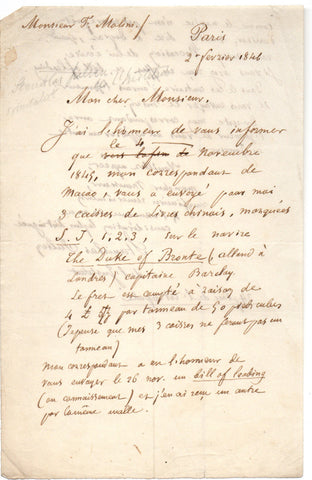 Monsieur F. Molini./
Paris
2 fevrier 1846
Mon cher Monsieur.
J'ai l'honneur de vous informer
que le 4 Novembre
1845, mon correspondant de
Macao, vous a envoyé pour moi
3 caisses de livres chinois, marquées
S. J, 1, 2, 3, sur le navire
The Duke of Bronte (attend à
Londres) capitaine Barclay
Le fret est compté à raison de
4 par tonneau de 50 pieds cubes
(Je pense que mes 3 caisses ne feront pas un
tonneau)
Mon correspondant a eu l'honneur de
vous envoyer le 26 nov. un bill of loading
(un connaissement) et j'en ai reçu un autre
par la même malle.